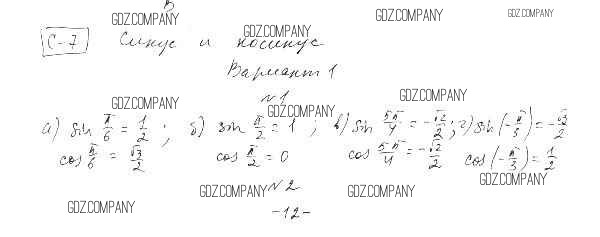 В
GDZ.COMPANY GDZ.COMPANY GDZ.COMPANY GDZ.COMPANY
С-7 Синус и косинус
Вариант 1
GDZ.COMPANY №1 GDZ.COMPANY GDZ.COMPANY
а) sin π/6 = 1/2 ; б) sin π/2 = 1 ; в) sin 5π/4 = -√2/2 ; г) sin(-π/3) = -√3/2
cos π/6 = √3/2 cos π/2 = 0 cos 5π/4 = -√2/2 cos(-π/3) = 1/2
GDZ.COMPANY №2 GDZ.COMPANY GDZ.COMPANY
GDZ.COMPANY -12-